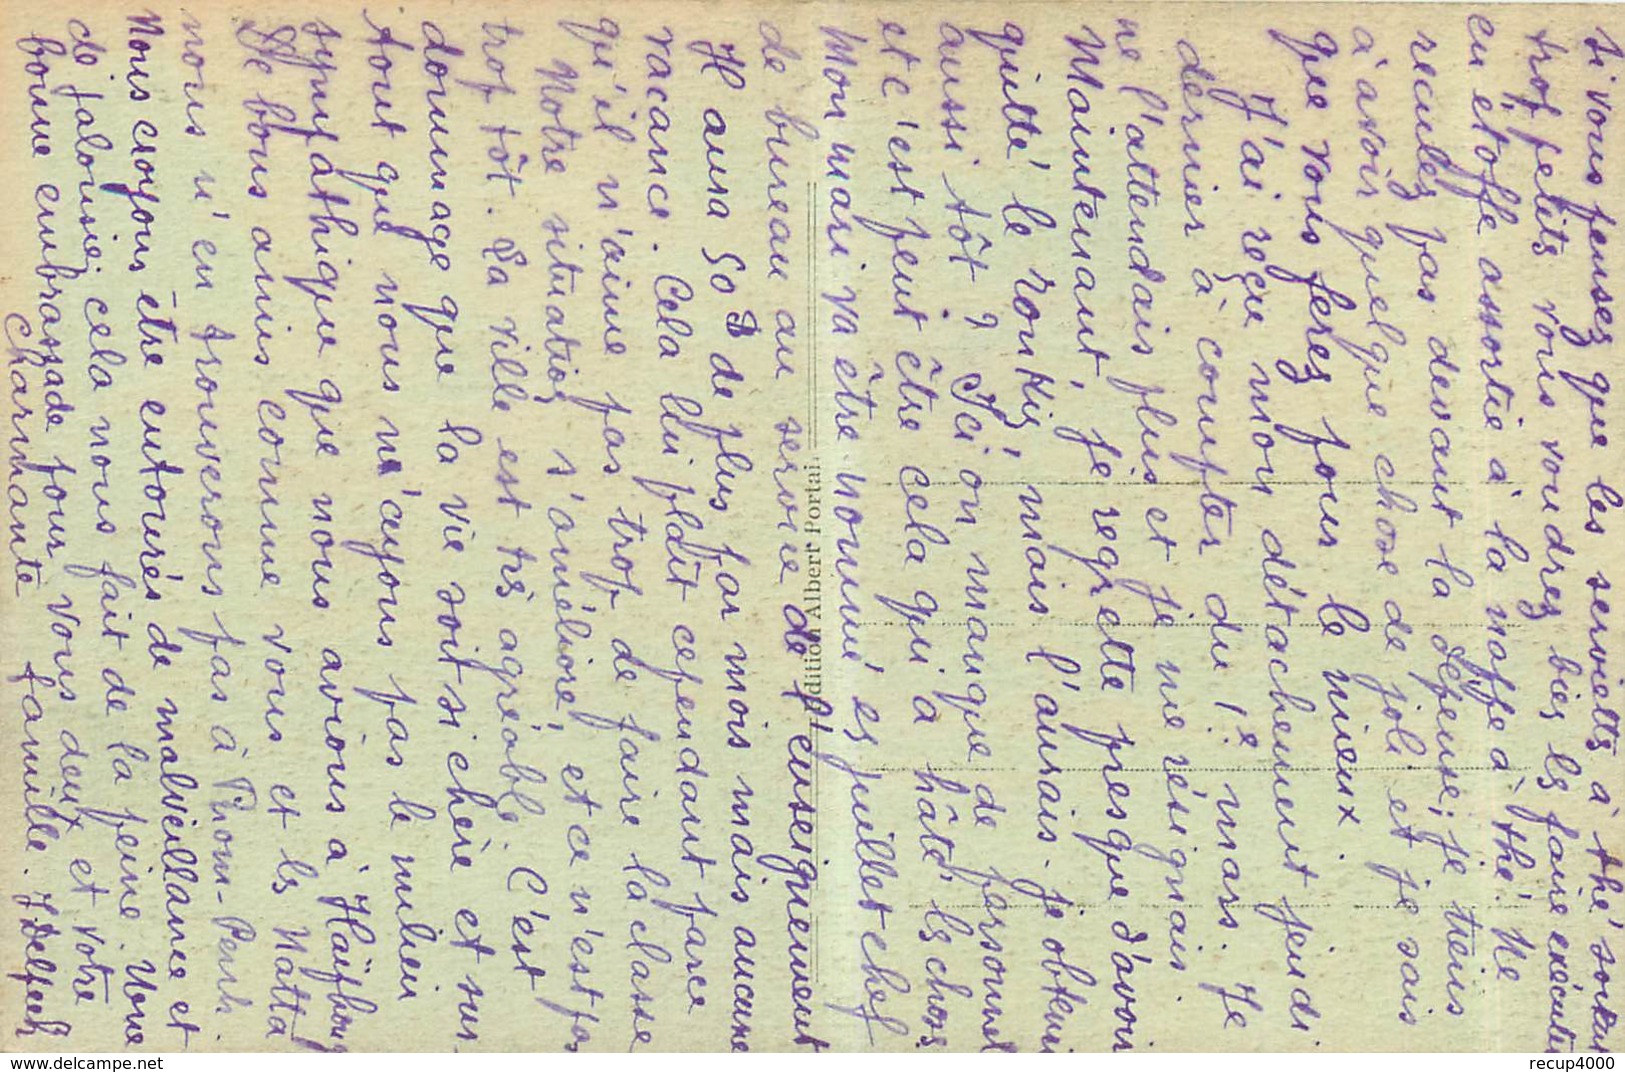 si vous pensez que les serviettes à thé soient
trop petits vous voudrez bien les faire exécuter
en étoffe assortie à la nappe à thé. Ne
reculez pas devant la dépense; je tiens
à avoir quelque chose de joli et je sais
que vous ferez pour le mieux.
J'ai reçu mon détachement jeudi
dernier à compter du 1er mars. Je
ne l'attendais plus et je me résignais.
Maintenant, je regrette presque d'avoir
quitté le mais l'aurais-je obtenu
aussi tôt? Ici on manque de personnel
et c'est peut être cela qui a hâté les choses
Mon mari va être nommé en juillet chef
de bureau au service de l'enseignement
Il aura 50 $ de plus par mois mais aucune
vacance. Cela lui plaît cependant parce
qu'il n'aime pas trop de faire la classe
Notre situation s'améliore et ce n'est pas
trop tôt. La ville est très agréable. C'est
dommage que la vie soit si chère et sur-
tout que nous n'ayons pas le milieu
sympathique que nous avions à Haïphong
De bons amis comme vous et les Natta
nous n'en trouverons pas à Pnom-Penh.
Nous croyons être entourés de malveillance et
de jalousie; cela nous fait de la peine. Une
bonne embrassade pour vous deux et votre
charmante famille. J Delpech
Edition Albert Portail
delcampe.net
recup4000